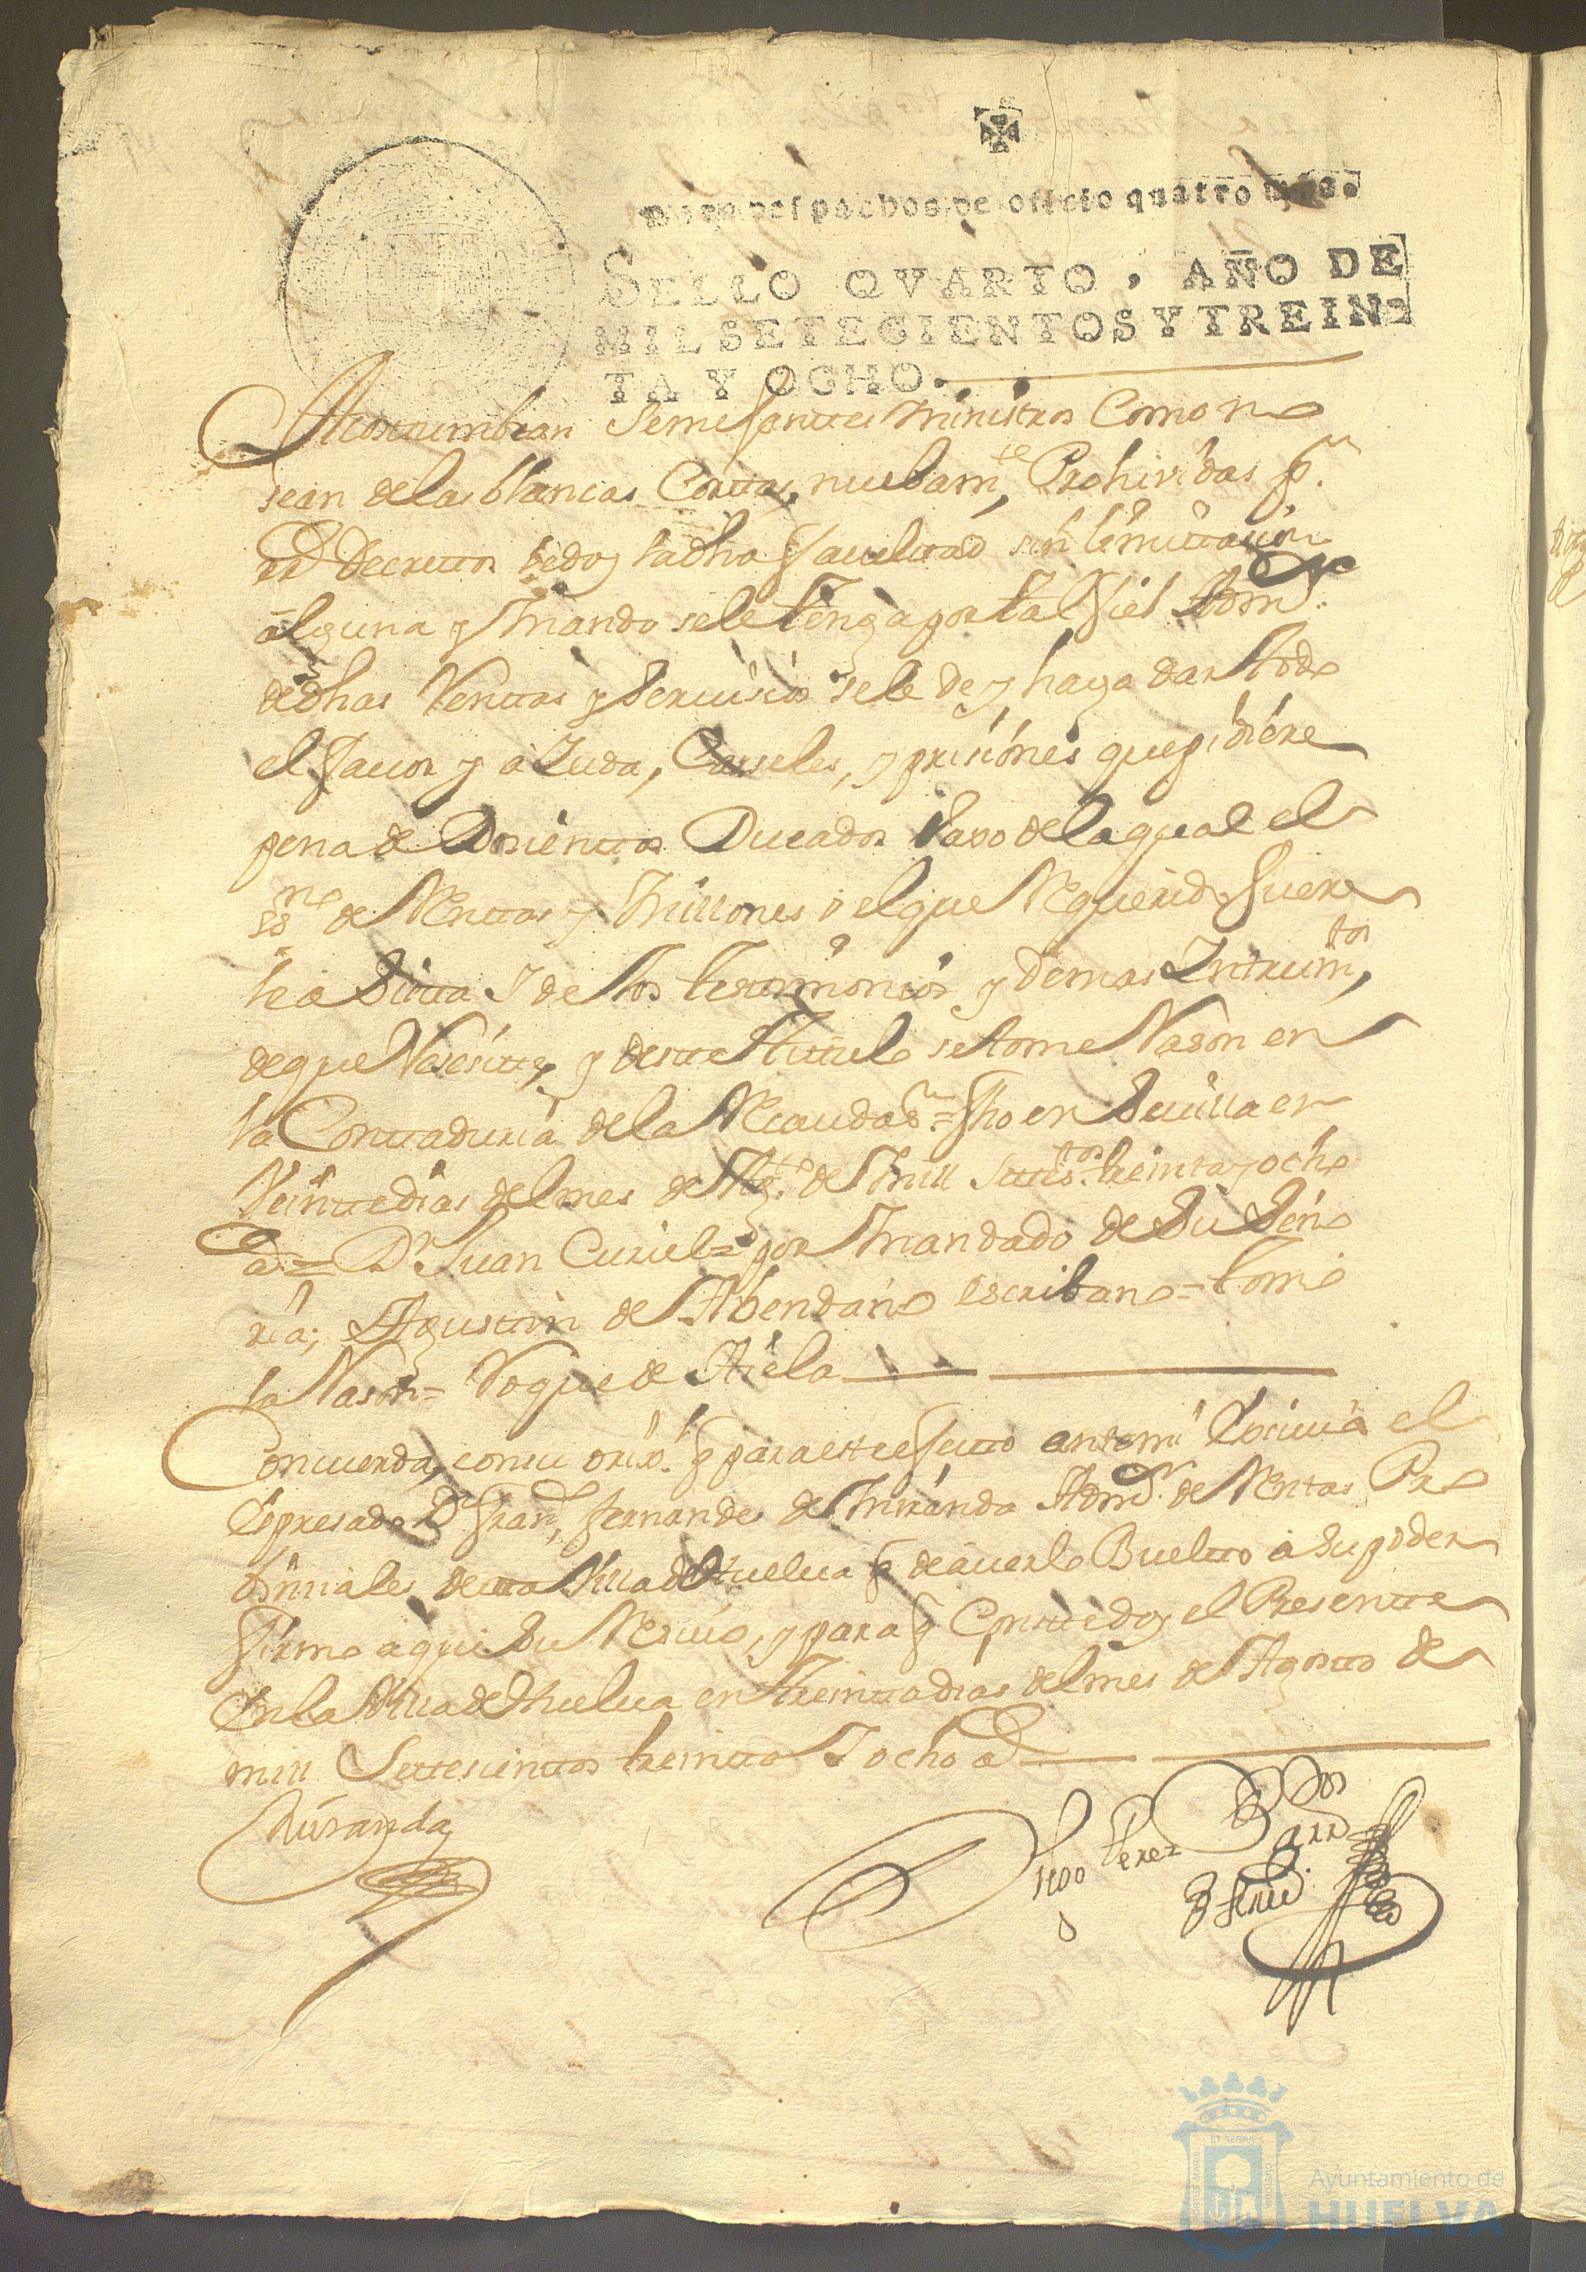 Para despachos de oficio quatro mrs.
SELLO QVARTO, AÑO DE
MIL SETECIENTOS Y TREIN-
TA Y OCHO.
Acostumbran Semejantes Ministros Como no
sean delas blancas Cortas, nuebamte Prohividas pr
Rl Decretto le doy la dha facultad sin limitacion
alguna y Mando se le tenga por tal fiel Admr
de dhas Renttas y Servicios se le de y haga dar todo
el favor y aZuda, Carseles, y prisiones que pidiere
pena de Dosienttos Ducados Vaxo de la qual el
ssno de Renttas y Millones o el que Requerido fuere
le a Sistta I de los testimonios y demas Instrumtos
de que Nesesitte, y deste Titulo se tome Rason en
la Conttaduria de la Recaudon = fho en Sevilla en
Veintte dias del mes de Agto de Mill Settestos treinta y ocho
as = Dn Juan Curiel = por Mandado de Su Seño
ria; Agusttin de Abendaño escribano = tome
la Rason = Roque de Aiela
Concuerda, con su orixl q para este efectto antemi Exsivio el
Expresado Dn Franco fernandes de Miranda Admor de Renttas Pro
binsiales desta Villa de Huelva q de averlo Buelto a Su poder
firmo aqui Su Resivo, y para q Conste doy el Presentte
En la Villa de Huelva en Treintta dias del mes de Agosto de
mill Settesienttos treintta I ocho as
Miranda
Diego Perez Barr
Ayuntamiento de
HUELVA